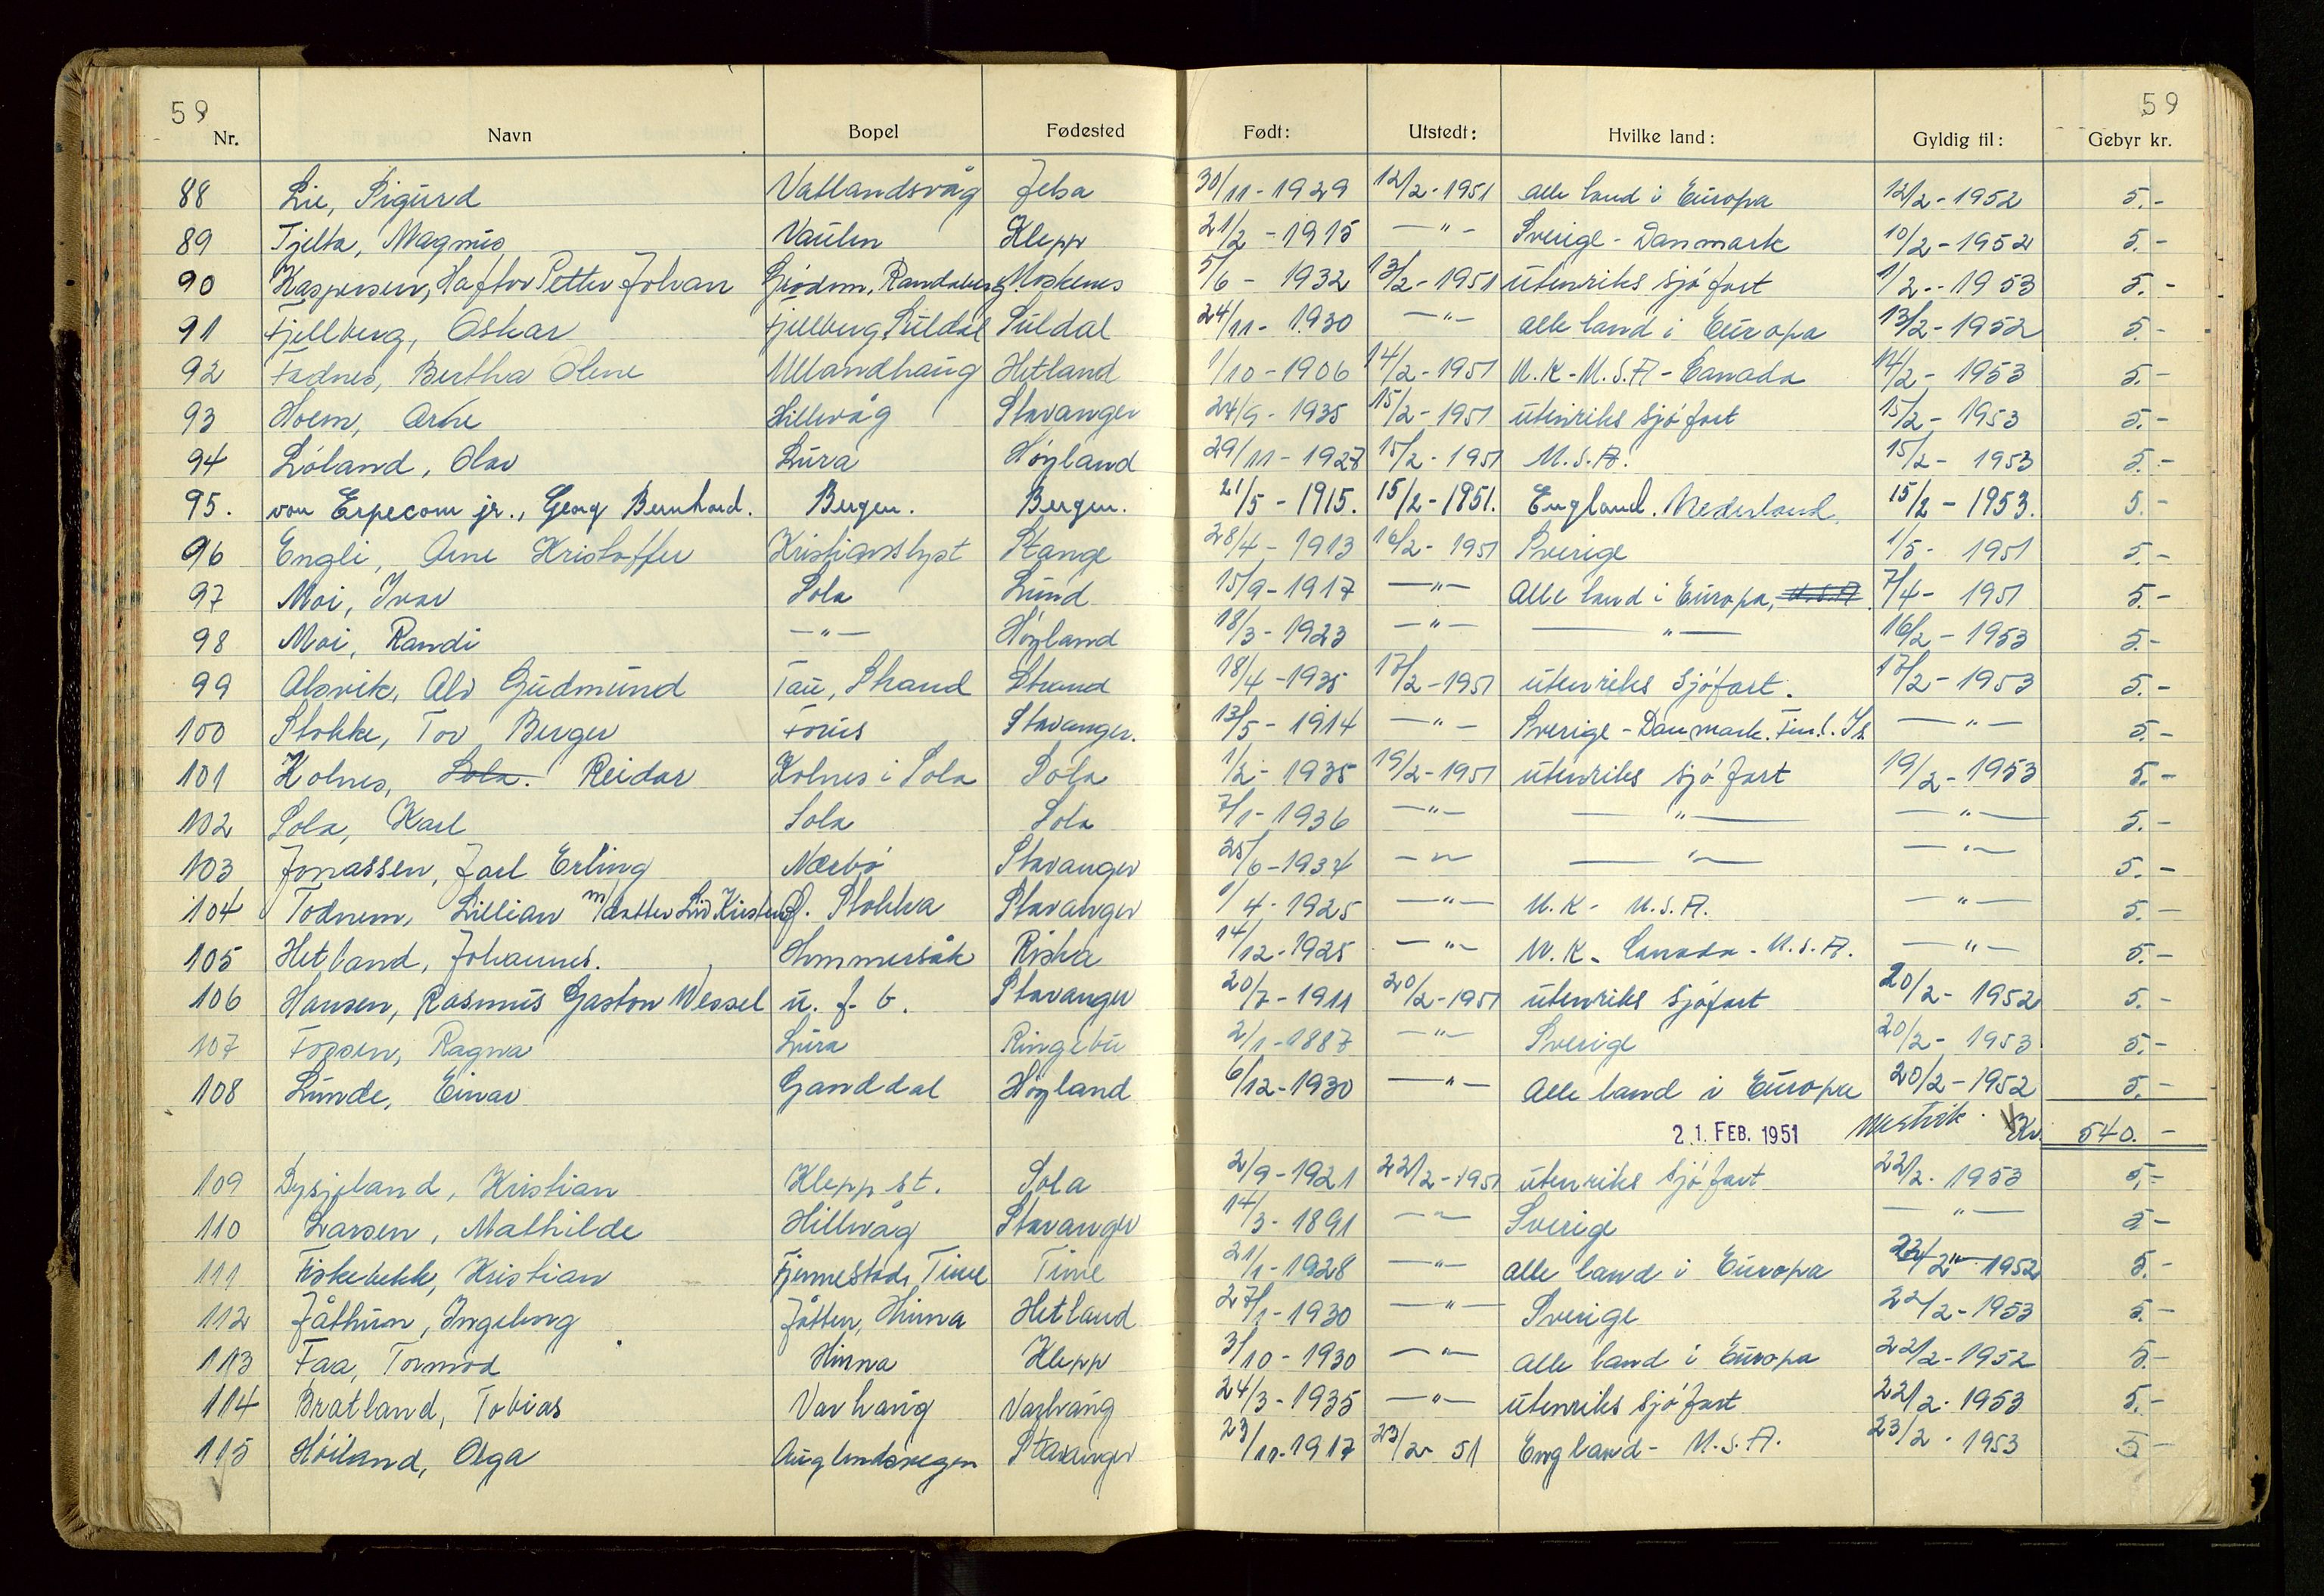 59 59
Nr. Navn Bopel Fødested Født: Utstedt: Hvilke land: Gyldig til: Gebyr kr.
88 Lie, Sigurd Vatlandsvåg Jelsa 30/11-1929 12/2-1951 alle land i Europa 12/2-1952 5.-
89 Tjelta, Magnus Vaulen Klepp 21/2-1915 -"- Sverige-Danmark 10/2-1952 5.-
90 Kaspersen, Haftor Petter Johan Grødem, Randaberg Moskenes 5/6-1932 13/2-1951 utenriks sjøfart 1/2-1953 5.-
91 Fjellberg, Oskar Fjellberg, Suldal Suldal 24/11-1930 -"- alle land i Europa 13/2-1952 5.-
92 Fadnes, Bertha Olene Ullandhaug Hetland 1/10-1906 14/2-1951 U.K-U.S.A-Canada 14/2-1953 5.-
93 Hoem, Arne Hillevåg Stavanger 24/9-1935 15/2-1951 utenriks sjøfart 15/2-1953 5.-
94 Løland, Olav Lura Høyland 29/11-1927 15/2-1951 U.S.A. 15/2-1953 5.-
95. von Erpecom jr., Georg Bernhard. Bergen. Bergen. 21/5-1915. 15/2-1951. England. Nederland. 15/2-1953. 5.-
96 Engli, Arne Kristoffer Kristianslyst Stange 28/4-1913 16/2-1951 Sverige 1/5-1951 5.-
97 Moi, Ivar Sola Lund 15/9-1917 -"- Alle land i Europa, U.S.A 7/4-1951 5.-
98 Moi, Randi -"- Høyland 18/3-1923 -"- -"- 16/2-1953 5.-
99 Alsvik, Alv Gudmund Tau, Strand Strand 18/4-1935 17/2-1951 utenriks sjøfart. 17/2-1953 5.-
100 Stokke, Tov Berger Forus Stavanger. 13/5-1914 -"- Sverige-Danmark. Finl. Isl. -"- 5.-
101 Kolnes, Sola. Reidar Kolnes i Sola Sola 1/2-1935 19/2-1951 utenriks sjøfart 19/2-1953 5.-
102 Sola, Karl Sola Sola 7/1-1936 -"- -"- -"- 5.-
103 Jonassen, Jarl Erling Nærbø Stavanger 25/6-1934 -"- -"- -"- 5.-
104 Todnem, Lillian m/datter Liv Kirsten Stokka Stavanger 1/4-1925 -"- U.K- U.S.A. -"- 5.-
105 Hetland, Johannes. Hommersåk Riska 14/12-1925 -"- U.K- Canada-U.S.A. -"- 5.-
106 Hansen, Rasmus Gaston Wessel u.f.b. Stavanger 20/7-1911 20/2-1951 utenriks sjøfart 20/2-1952 5.-
107 Fossen, Ragna Lura Ringebu 2/1-1887 -"- Sverige 20/2-1953 5.-
108 Lunde, Einar Ganddal Høyland 6/12-1930 -"- Alle land i Europa 20/2-1952 5.-
21. FEB. 1951 Westvik Kr. 540.-
109 Dysjaland, Kristian Klepp st. Sola 2/9-1921 22/2-1951 utenriks sjøfart 22/2-1953 5.-
110 Larsen, Mathilde Hillevåg Stavanger 14/3-1891 -"- Sverige -"- 5.-
111 Fiskebekk, Kristian Fjermestad, Time Time 21/1-1928 -"- alle land i Europa 22/2-1952 5.-
112 Jåthun, Ingeborg Jåtten, Hinna Hetland 27/1-1930 -"- Sverige 22/2-1953 5.-
113 Faa, Tormod Hinna Klepp 3/10-1930 -"- alle land i Europa 22/2-1952 5.-
114 Bratland, Tobias Varhaug Varhaug 24/3-1935 -"- utenriks sjøfart 22/2-1953 5.-
115 Høiland, Olga Auglendsvegen Stavanger 23/10-1917 23/2-51 England-U.S.A. 23/2-1953 5-